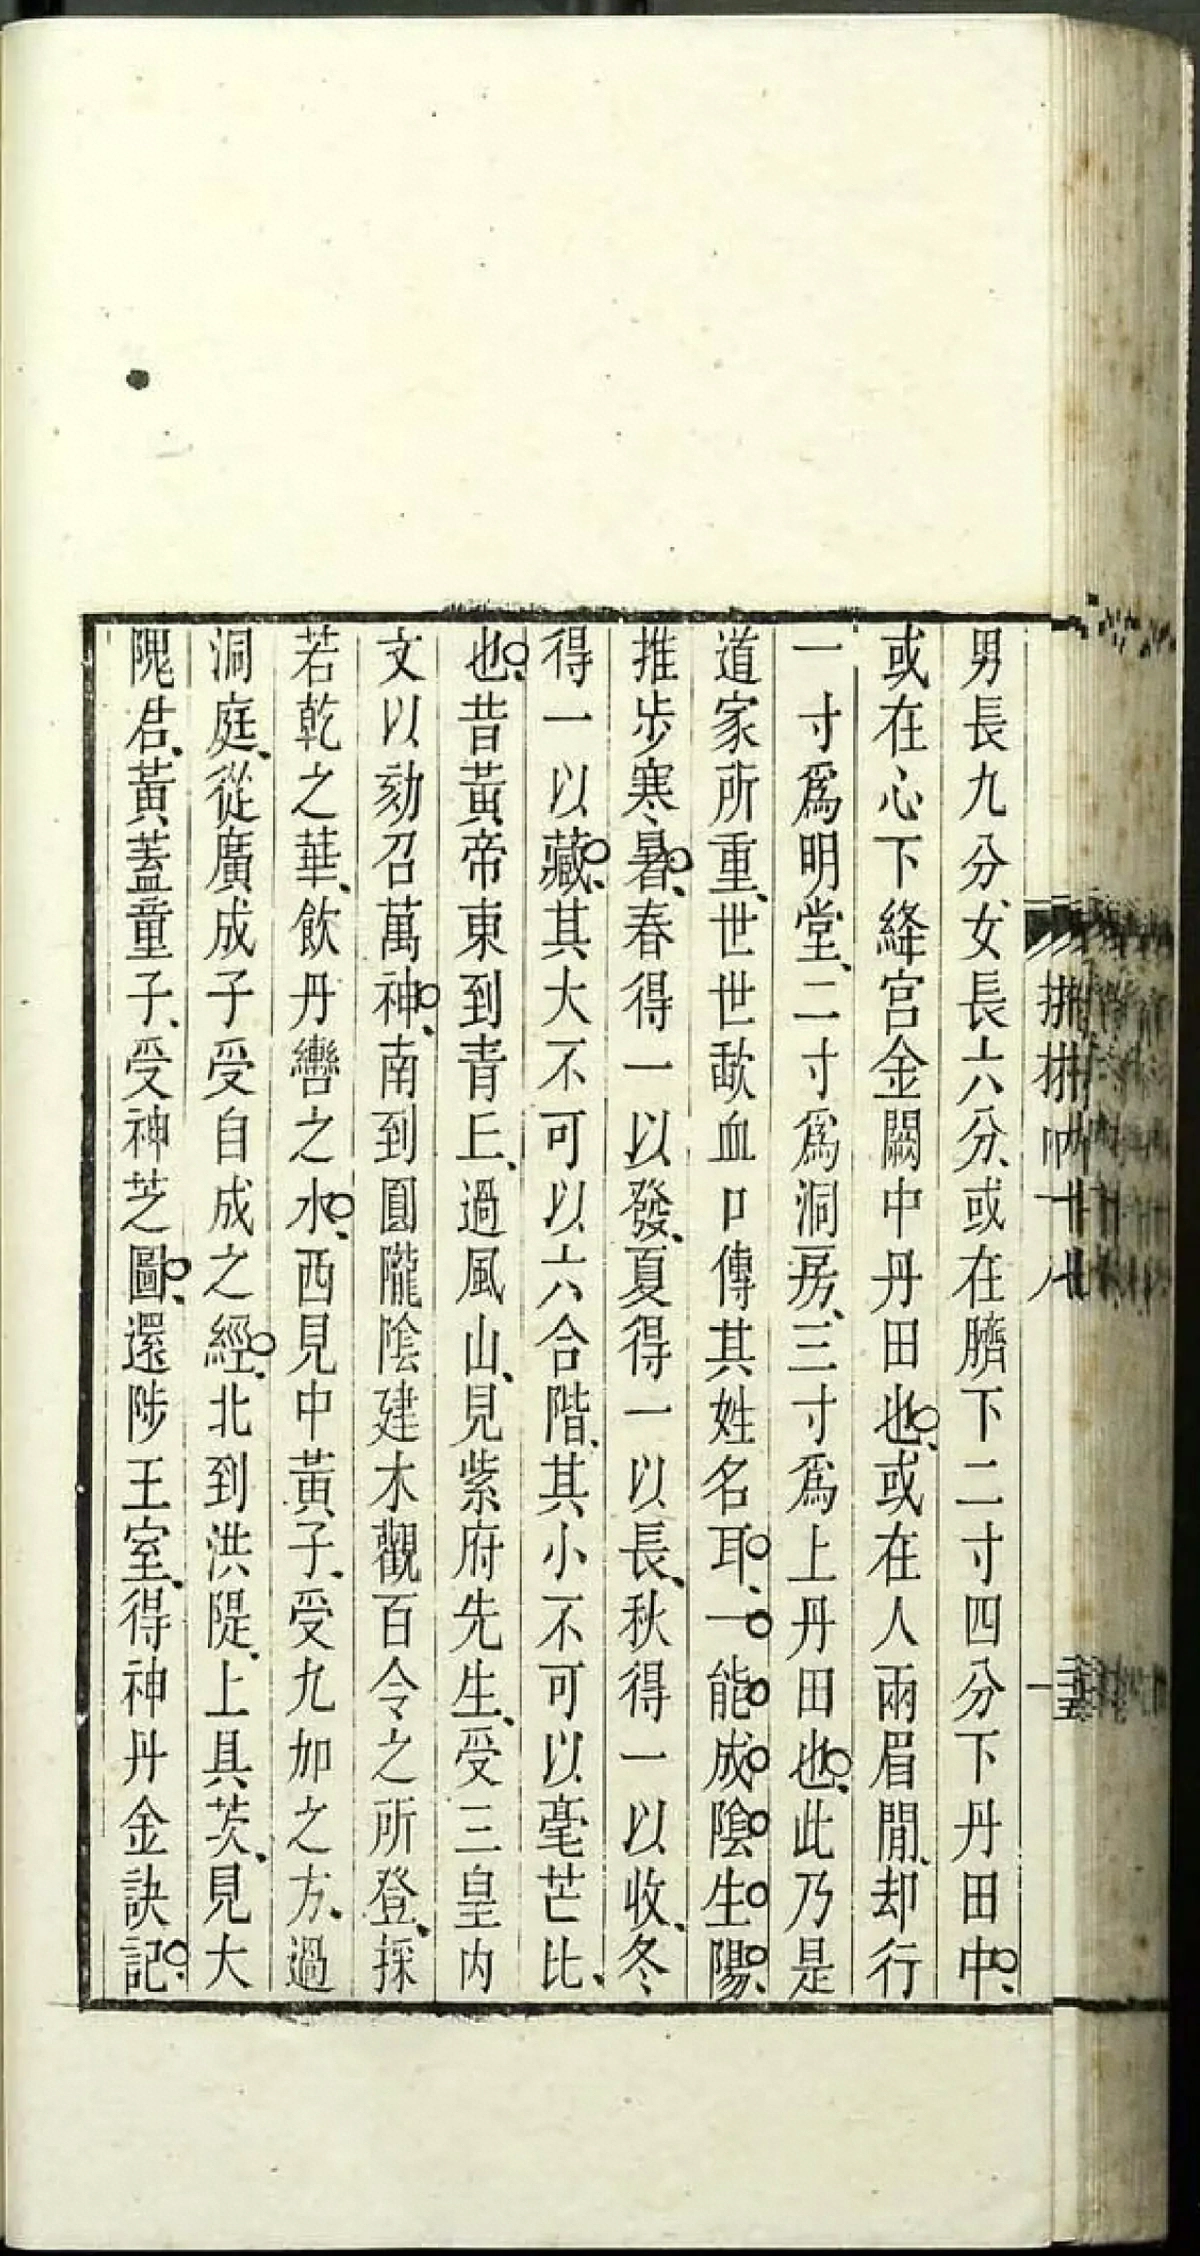 男長九分、女長六分、或在臍下二寸四分下丹田中。
或在心下絳宮金闕中丹田也。或在人兩眉閒、却行
一寸爲明堂、二寸爲洞房、三寸爲上丹田也。此乃是
道家所重、世世歃血口傳其姓名耳。一能成陰生陽、
推步寒暑。春得一以發、夏得一以長、秋得一以收、冬
得一以藏。其大不可以六合階、其小不可以毫芒比、
也。昔黃帝東到青丘、過風山、見紫府先生、受三皇內
文以劾召萬神。南到圓隴陰建木觀百令之所登、採
若乾之華、飲丹巒之水。西見中黃子、受九加之方、過
洞庭、從廣成子受自成之經。北到洪隄、上具茨、見大
隗君、黃蓋童子、受神芝圖。還陟王室、得神丹金訣記。